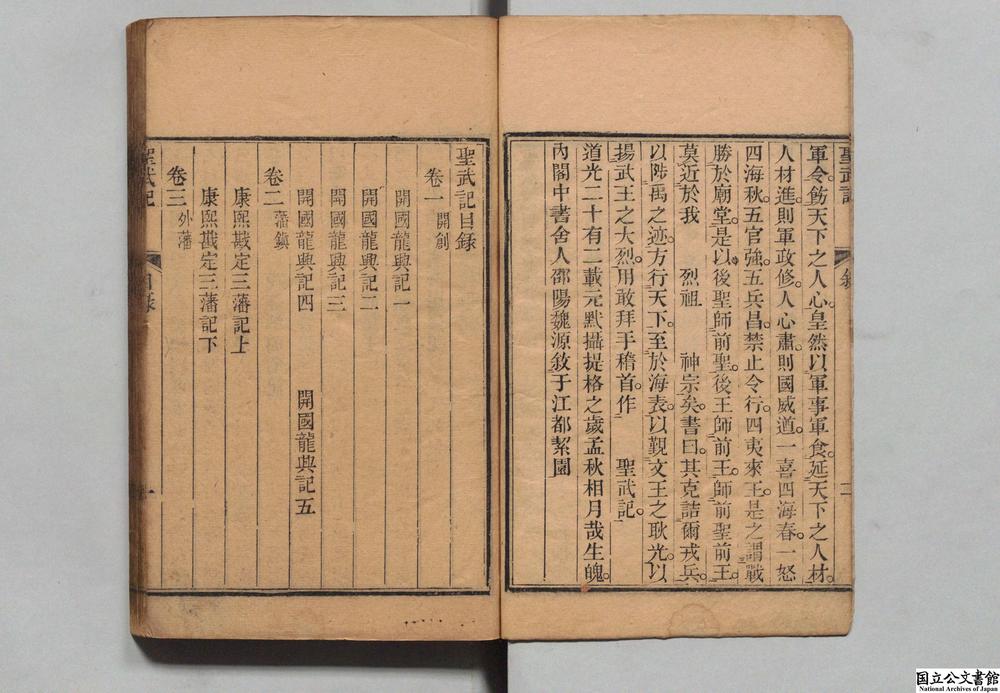 聖武記
敘
二
軍令飭天下之人心皇然以軍事軍食延天下之人材
人材進則軍政修人心肅則國威遒一喜四海春一怒
四海秋五官強五兵昌禁止令行四夷來王是之謂戰
勝於廟堂是以後聖師前聖後王師前王師前聖前王
莫近於我 烈祖 神宗矣書曰其克詰爾戎兵
以陟禹之迹方行天下至於海表以覲文王之耿光以
揚武王之大烈用敢拜手稽首作 聖武記
道光二十有二載元默攝提格之歲孟秋相月哉生魄
內閣中書舍人邵陽魏源敘于江都絜園
聖武記目錄
卷一 開創
開國龍興記一
開國龍興記二
開國龍興記三
開國龍興記四 開國龍興記五
卷二 藩鎮
康熙戡定三藩記上
康熙戡定三藩記下
卷三 外藩
聖武記
目錄
一
国立公文書館
National Archives of Japan